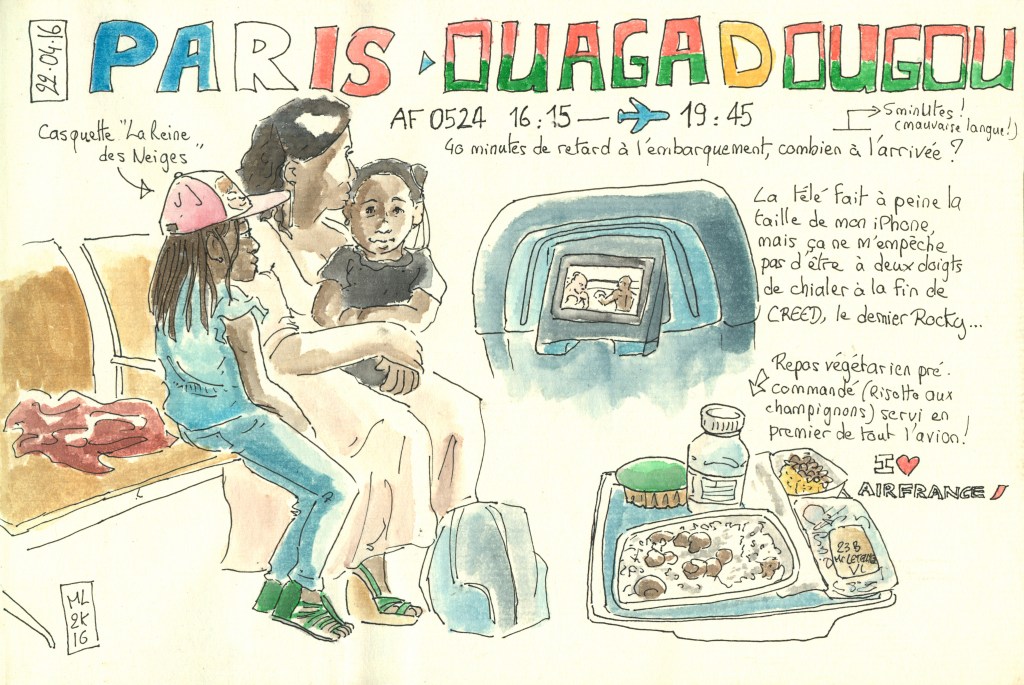 22.04.16
PARIS OUAGADOUGOU
AF 0524 16:15 — 19:45
5 minutes !
(mauvaise langue !)
40 minutes de retard à l'embarquement, combien à l'arrivée ?
Casquette "La Reine
des Neiges"
La télé fait à peine la
taille de mon iPhone,
mais ça ne m'empêche
pas d'être à deux doigts
de chialer à la fin de
CREED, le dernier Rocky...
Repas végétarien pré-
commandé (Risotto aux
champignons) servi en
premier de tout l'avion !
I ❤
AIRFRANCE
23B
VL
ML
2K
16